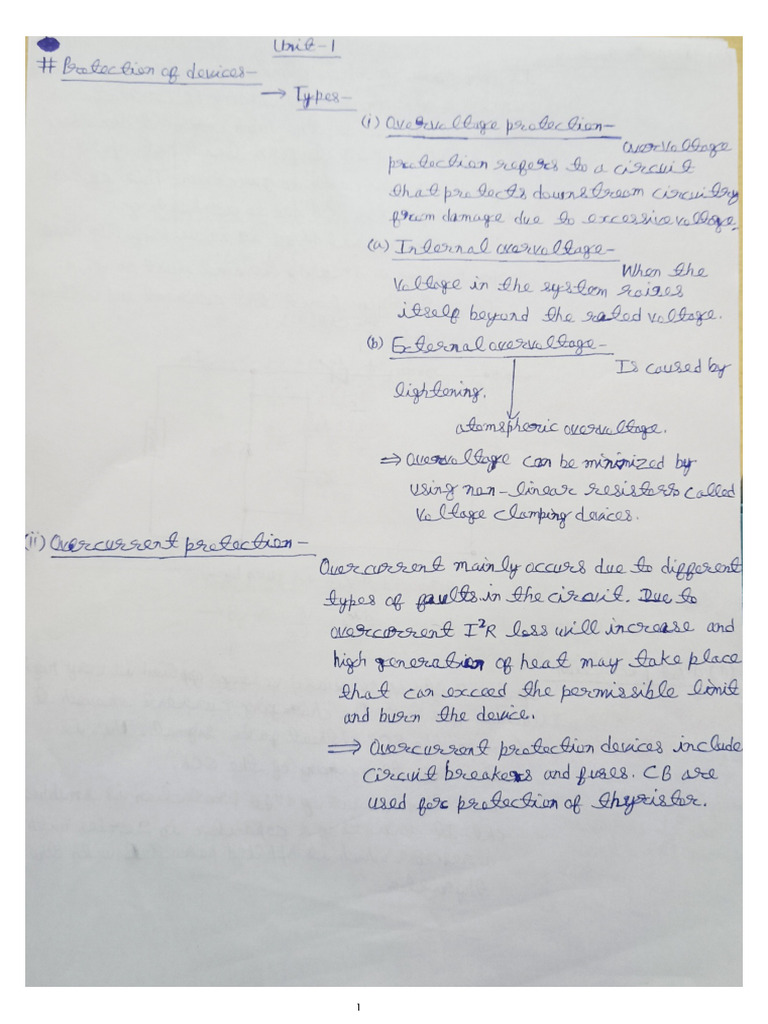 Unit-1
# Protection of devices-
→ Types-
(i) Overvoltage protection-
overvoltage
protection refers to a circuit
that protects downstream circuitry
from damage due to excessive voltage.
(a) Internal overvoltage-
When the
voltage in the system raises
itself beyond the rated voltage.
(b) External overvoltage-
Is caused by
lightening.
atomspheric overvoltage.
⇒ overvoltage can be minimized by
using non-linear resistors called
voltage clamping devices.
(ii) Overcurrent protection-
Overcurrent mainly occurs due to different
types of faults in the circuit. Due to
overcurrent I²R loss will increase and
high generation of heat may take place
that can exceed the permissible limit
and burn the device.
⇒ Overcurrent protection devices include
circuit breakers and fuses. CB are
used for protection of thyristor.
1